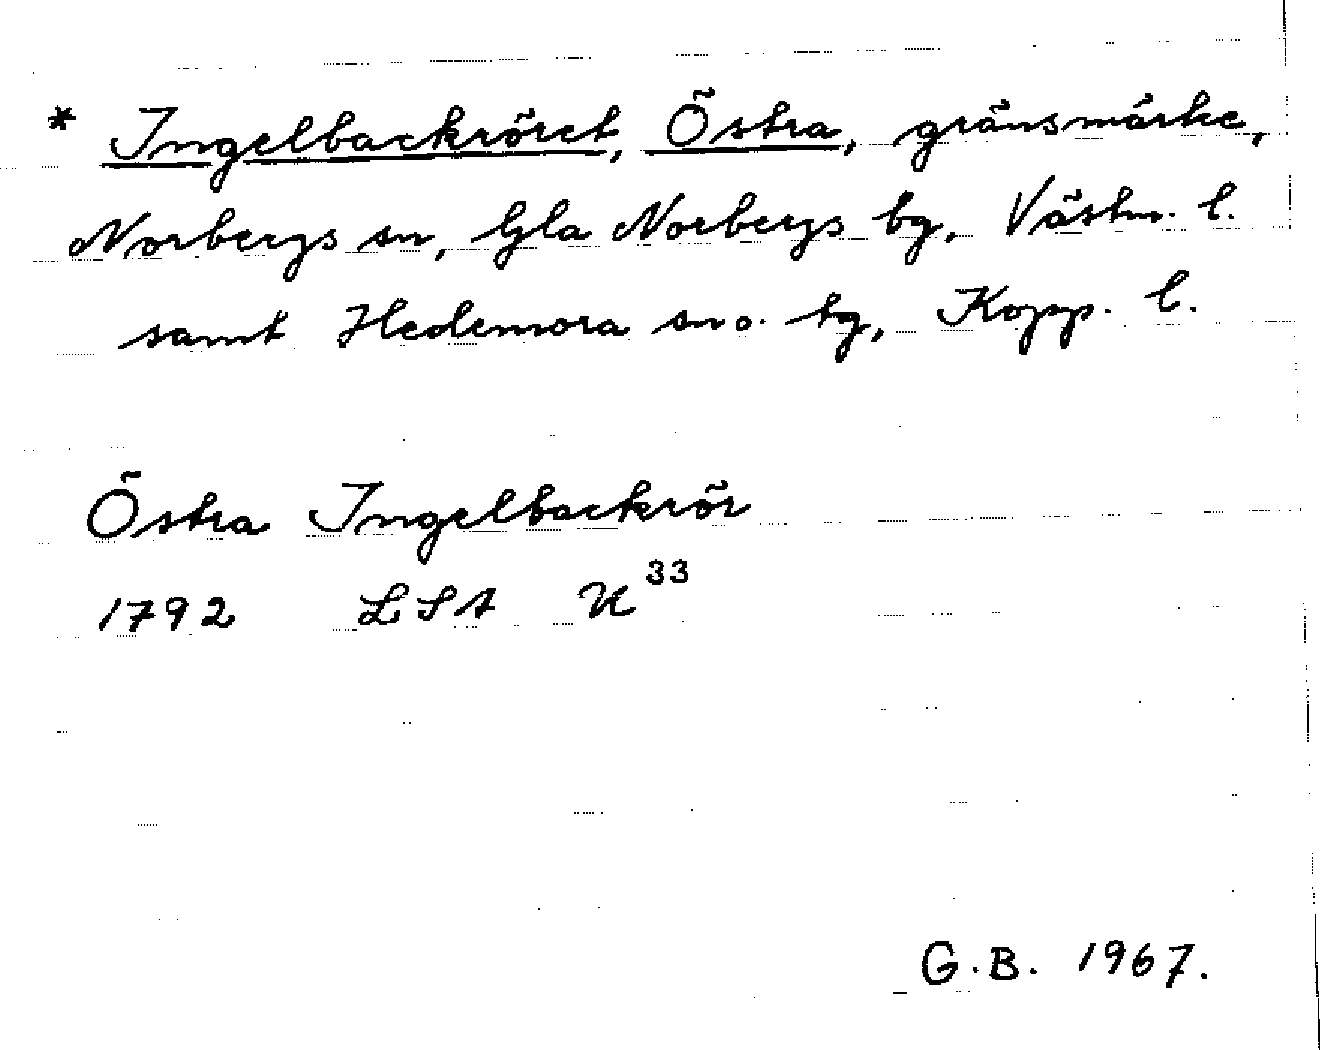 * Ingelbackröret, Östra, gränsmärke,
Norbergs sn, Gla Norbergs bg, Västm. l.
samt Hedemora sn o. tg, Kopp. l.
Östra Ingelbackrör
1792 LSA U33
G.B. 1967.